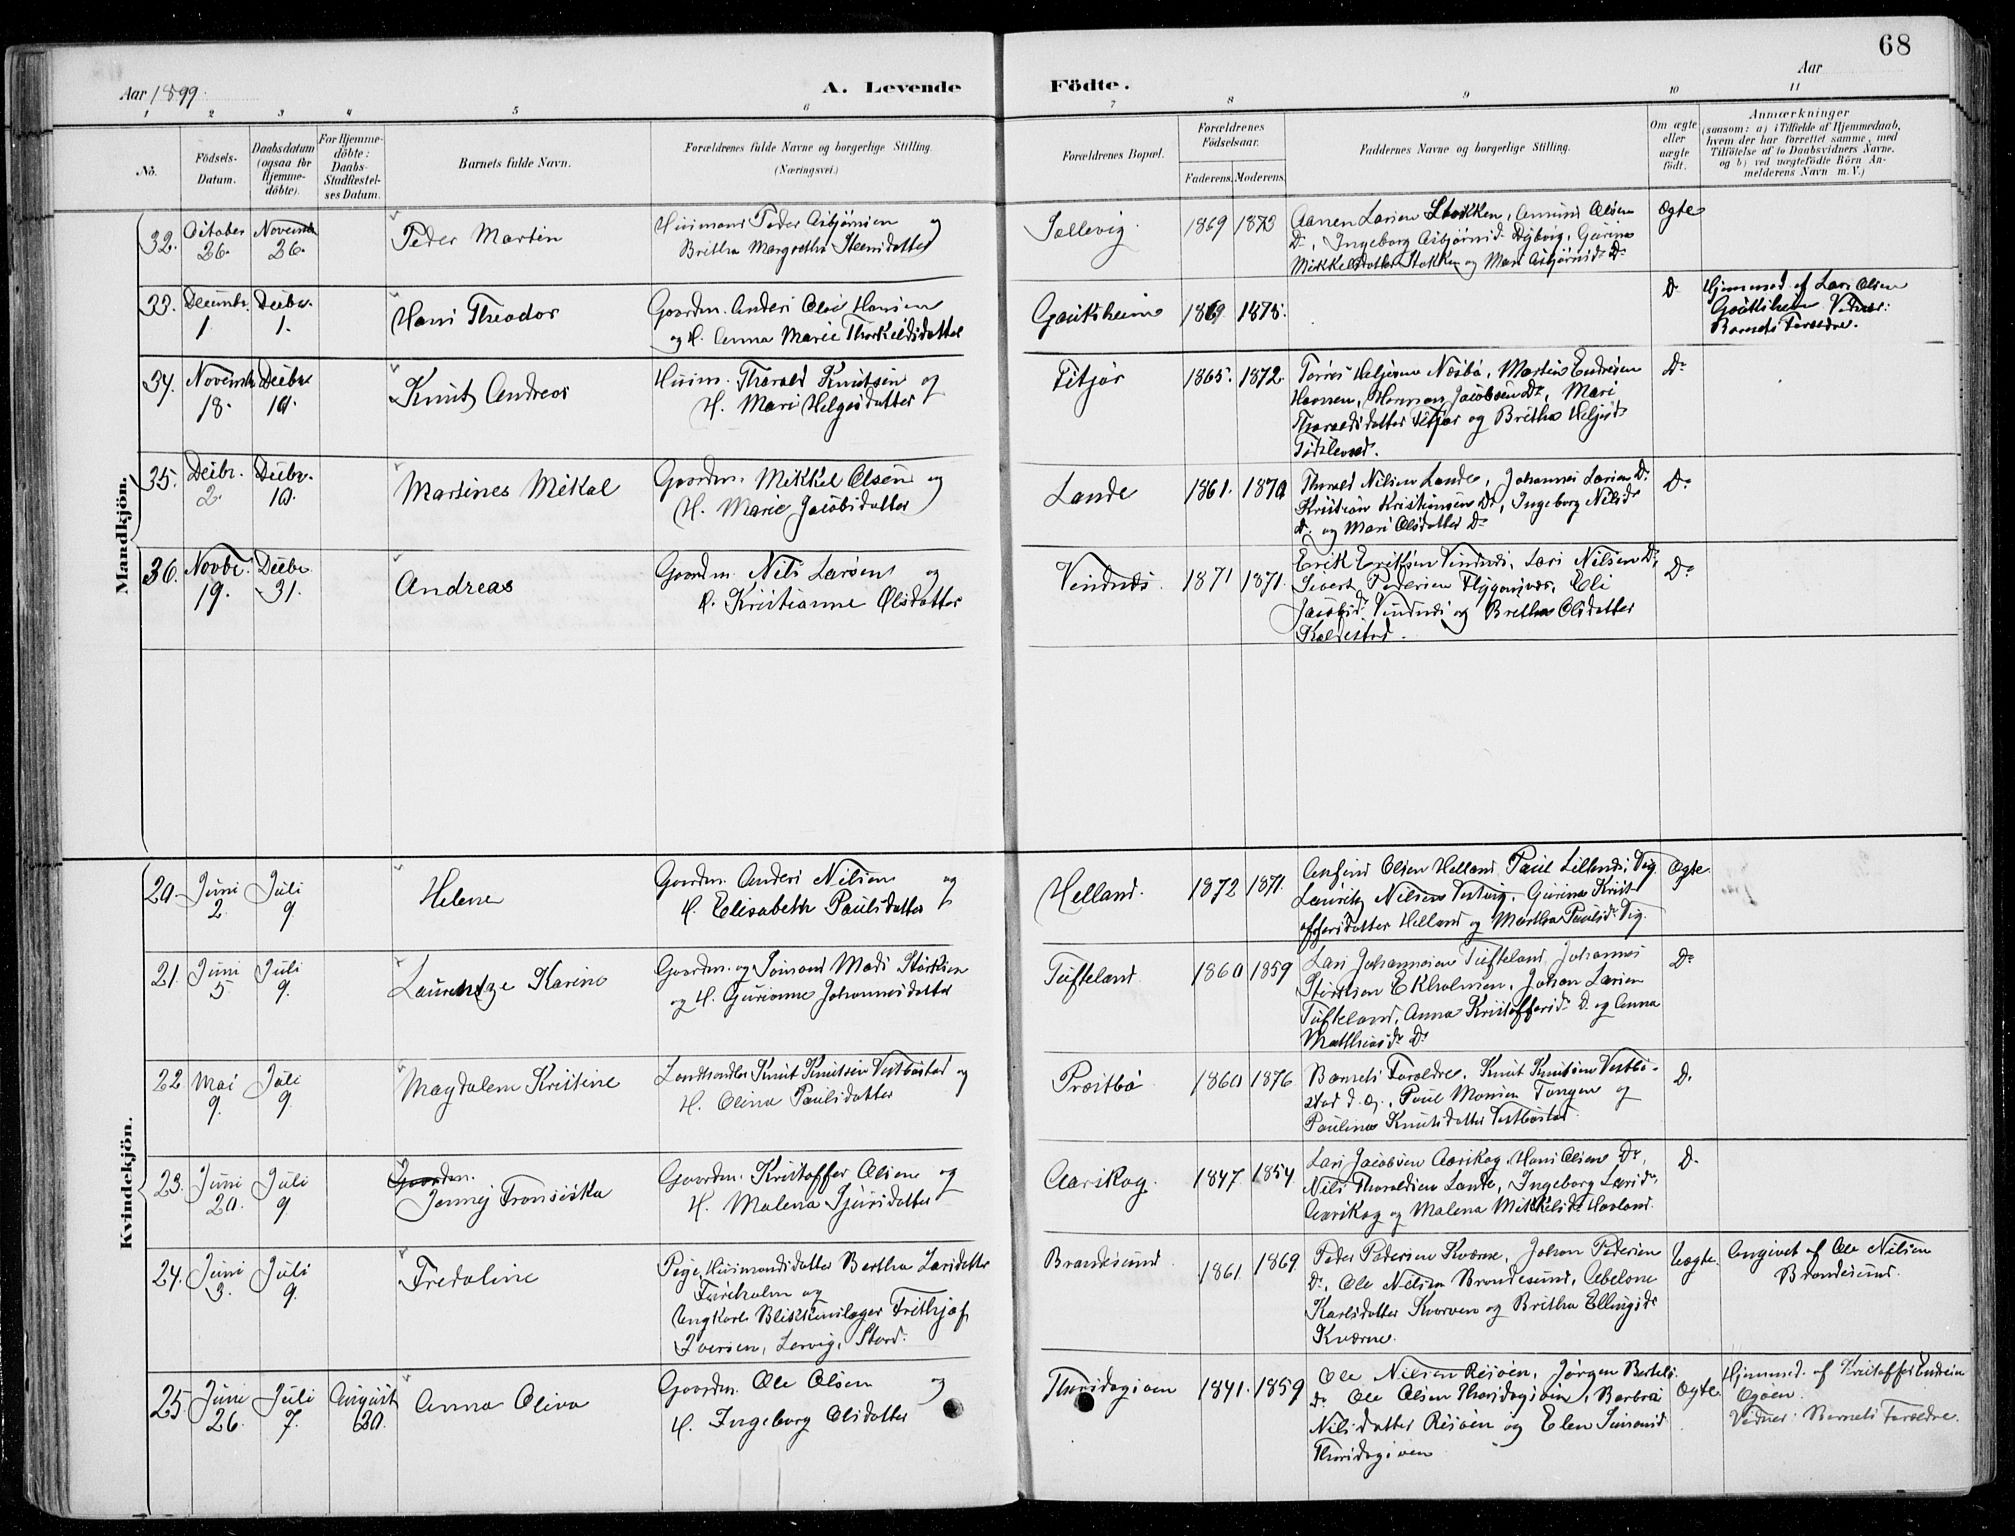 68
Aar 1899.
A. Levende Födte.
Aar
1 2 3 4 5 6 7 8 9 10 11
No.
Födsels-Datum.
Daabsdatum (ogsaa for Hjemme-döbte).
For Hjemme-döbte: Daabs-Stadfæstel-ses Datum.
Barnets fulde Navn.
Forældrenes fulde Navne og borgerlige Stilling. (Næringsvei.)
Forældrenes Bopæl.
Forældrenes Födselsaar.
Faderens. Moderens.
Faddernes Navne og borgerlige Stilling.
Om ægte eller uægte födt.
Anmærkninger
(saasom: a) i Tilfælde af Hjemmedaab, hvem der har forrettet samme, med Tilföielse af to Daabsvidners Navne, og b) ved uægtefödte Börn An-melderens Navn m. V.)
Mandkjön.
32. October 26. Novemb. 26. Peder Martin
Huusmand Peder Asbjørnsen og
Britha Margretha Steensdatter
Sallevig. 1869 1873
Aanen Larsen Stokken, Amund Olsen
Do, Ingeborg Asbjørnsd. Dybvig, Gurina
Mikkelsdatter Stokken og Mari Asbjørnsdr Do
Ægte
33. Decembr. 1. Decbr. 1. Hans Theodor
Gaardm. Anders Olai Hansen
og H. Anna Marie Thorkeldsdatter
Gautsheim 1869. 1875.
Do
Hjemmed. af Lars Olsen
Gautsheim Vidner:
Barnets Forældre.
34. Novemb. 18. Decbr. 10. Knut Andreas
Huusm. Thorald Knutsen og
H. Mari Helgesdatter
Fitjar 1865. 1872.
Tørres Heljesen Næsbø, Martin Endresen
Havnen, Herman Jacobsen Do, Mari
Thoraldsdatter Fitjar og Britha Heljesdr
Do
35. Decbr. 2. Decbr. 10. Martines Mikal
Gaardm. Mikkel Olsen og
H. Marie Jacobsdatter
Lande 1861. 1870
Thorald Nilsen Lande, Johannes Larsen Do
Kristian Kristiansen Do, Ingeborg Nilsdr
Do og Mari Olsdatter Do
Do
36. Novbr. 19. Decbr. 31. Andreas
Gaardm. Nils Larsen og
H. Kristianne Olsdatter
Vindnæs 1871 1871.
Erik Eriksen Vindnæs, Lars Nilsen Do,
Sivert Pedersen Flygansvær, Eli
Jacobsdr Vindnæs og Britha Olsdatter
Koldestad.
Do
Kvindekjön.
20. Juni 2. Juli 9. Helene
Gaardm. Anders Nilsen og
H. Elisabeth Paulsdatter
Helland. 1872 1871.
Anfind Olsen Helland, Paul Lillenæs, Vig
Lauritz Nilsen Vestvig, Gurina Krist-
offersdatter Helland og Martha Paulsdr Vig.
Ægte
21. Juni 5. Juli 9. Laurentze Karine
Gaardm. og Sømand Mads Størksen
og H. Gurianne Johannesdatter
Tufteland 1860 1859
Lars Johannesen Tufteland, Johannes
Størksen Ekholmen, Johan Larsen
Tufteland, Anna Kristoffersdr Do og Anna
Matthiasdr Do
Do
22 Mai 9. Juli 9 Magdalene Kristine
Landhandler Knut Knutsen Vestbøstad og
H. Olina Paulsdatter
Præstbø 1860 1876
Barnets Forældre, Knut Knutsen Vestbø-
stad d. æ., Paul Monsen Tangen og
Pauline Knutsdatter Vestbøstad
Do
23. Juni 20. Juli 9
Gaardm.
Jenny Fransiska
Gaardm. Kristoffer Olsen og
H. Malena Sjursdatter
Aarskog. 1847. 1854
Lars Jacobsen Aarskog, Hans Olsen Do,
Nils Thoraldsen Lande, Ingeborg Larsdr
Aarskog og Malena Mikkelsdr Havland.
Do
24. Juni 3. Juli 9. Fredoline
Pige, Huusmandsdatter Bertha Larsdatter
Fureholm og
Ungkarl Blikkenslager Frithjof
Iversen, Lervig, Stord.
Brandesund 1861 1869
Peder Pedersen Kværne, Johan Pedersen
Do, Ole Nilsen Brandesund, Abelone
Karlsdatter Kvarven og Britha Ellingsdr
Kværne.
Uægte.
Angivet af Ole Nilsen
Brandesund.
25 Juni 26. Juli 7. August 20. Anna Oliva
Gaardm. Ole Olsen og
H. Ingeborg Olsdatter
Thorsdagsøen 1841. 1859
Ole Nilsen Resøen, Jørgen Bertels.
Do Ole Olsen Thorsdagsøen, Barbra
Nilsdatter Resøen og Elen Simonsd
Thorsdagsøen
Ægte
Hjemmed. af Kristoffer Endresen
Øgøen.
Vidner: Barnets Forældre.